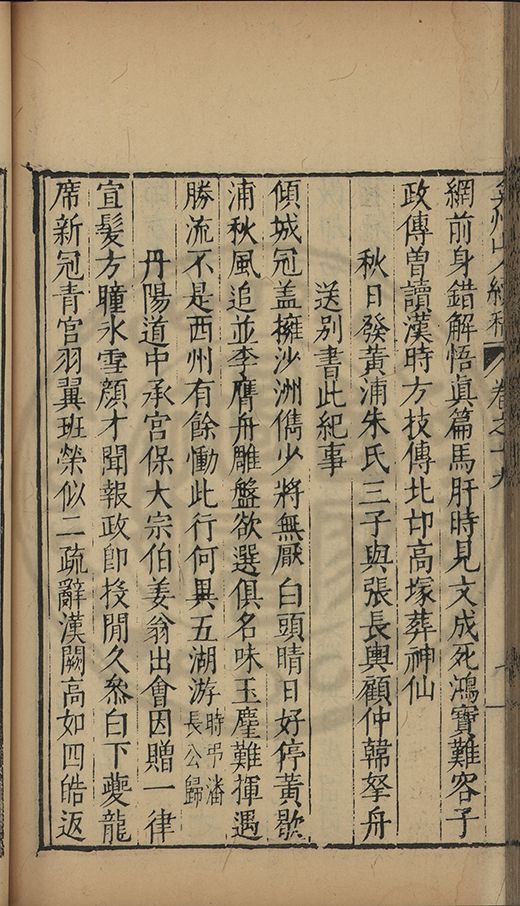 弇州山人續稿 卷之十九
網前身錯解悟真篇馬肝時見文成死鴻寶難容子
政傳曾讀漢時方技傳北邙高塚葬神仙
秋日發黃浦朱氏三子與張長輿顧仲韓拏舟
送别書此紀事
傾城冠盖擁沙洲儁少將無厭白頭晴日好停黃歇
浦秋風追並李膺舟雕盤欲選俱名味玉麈難揮遇
勝流不是西州有餘慟此行何異五湖游時弔潘長公歸
丹陽道中承宮保大宗伯姜翁出會因贈一律
宣髮方瞳氷雪顔才聞報政卽投閒久叅白下夔龍
席新冠青宮羽翼班榮似二疏辭漢闕高如四皓返